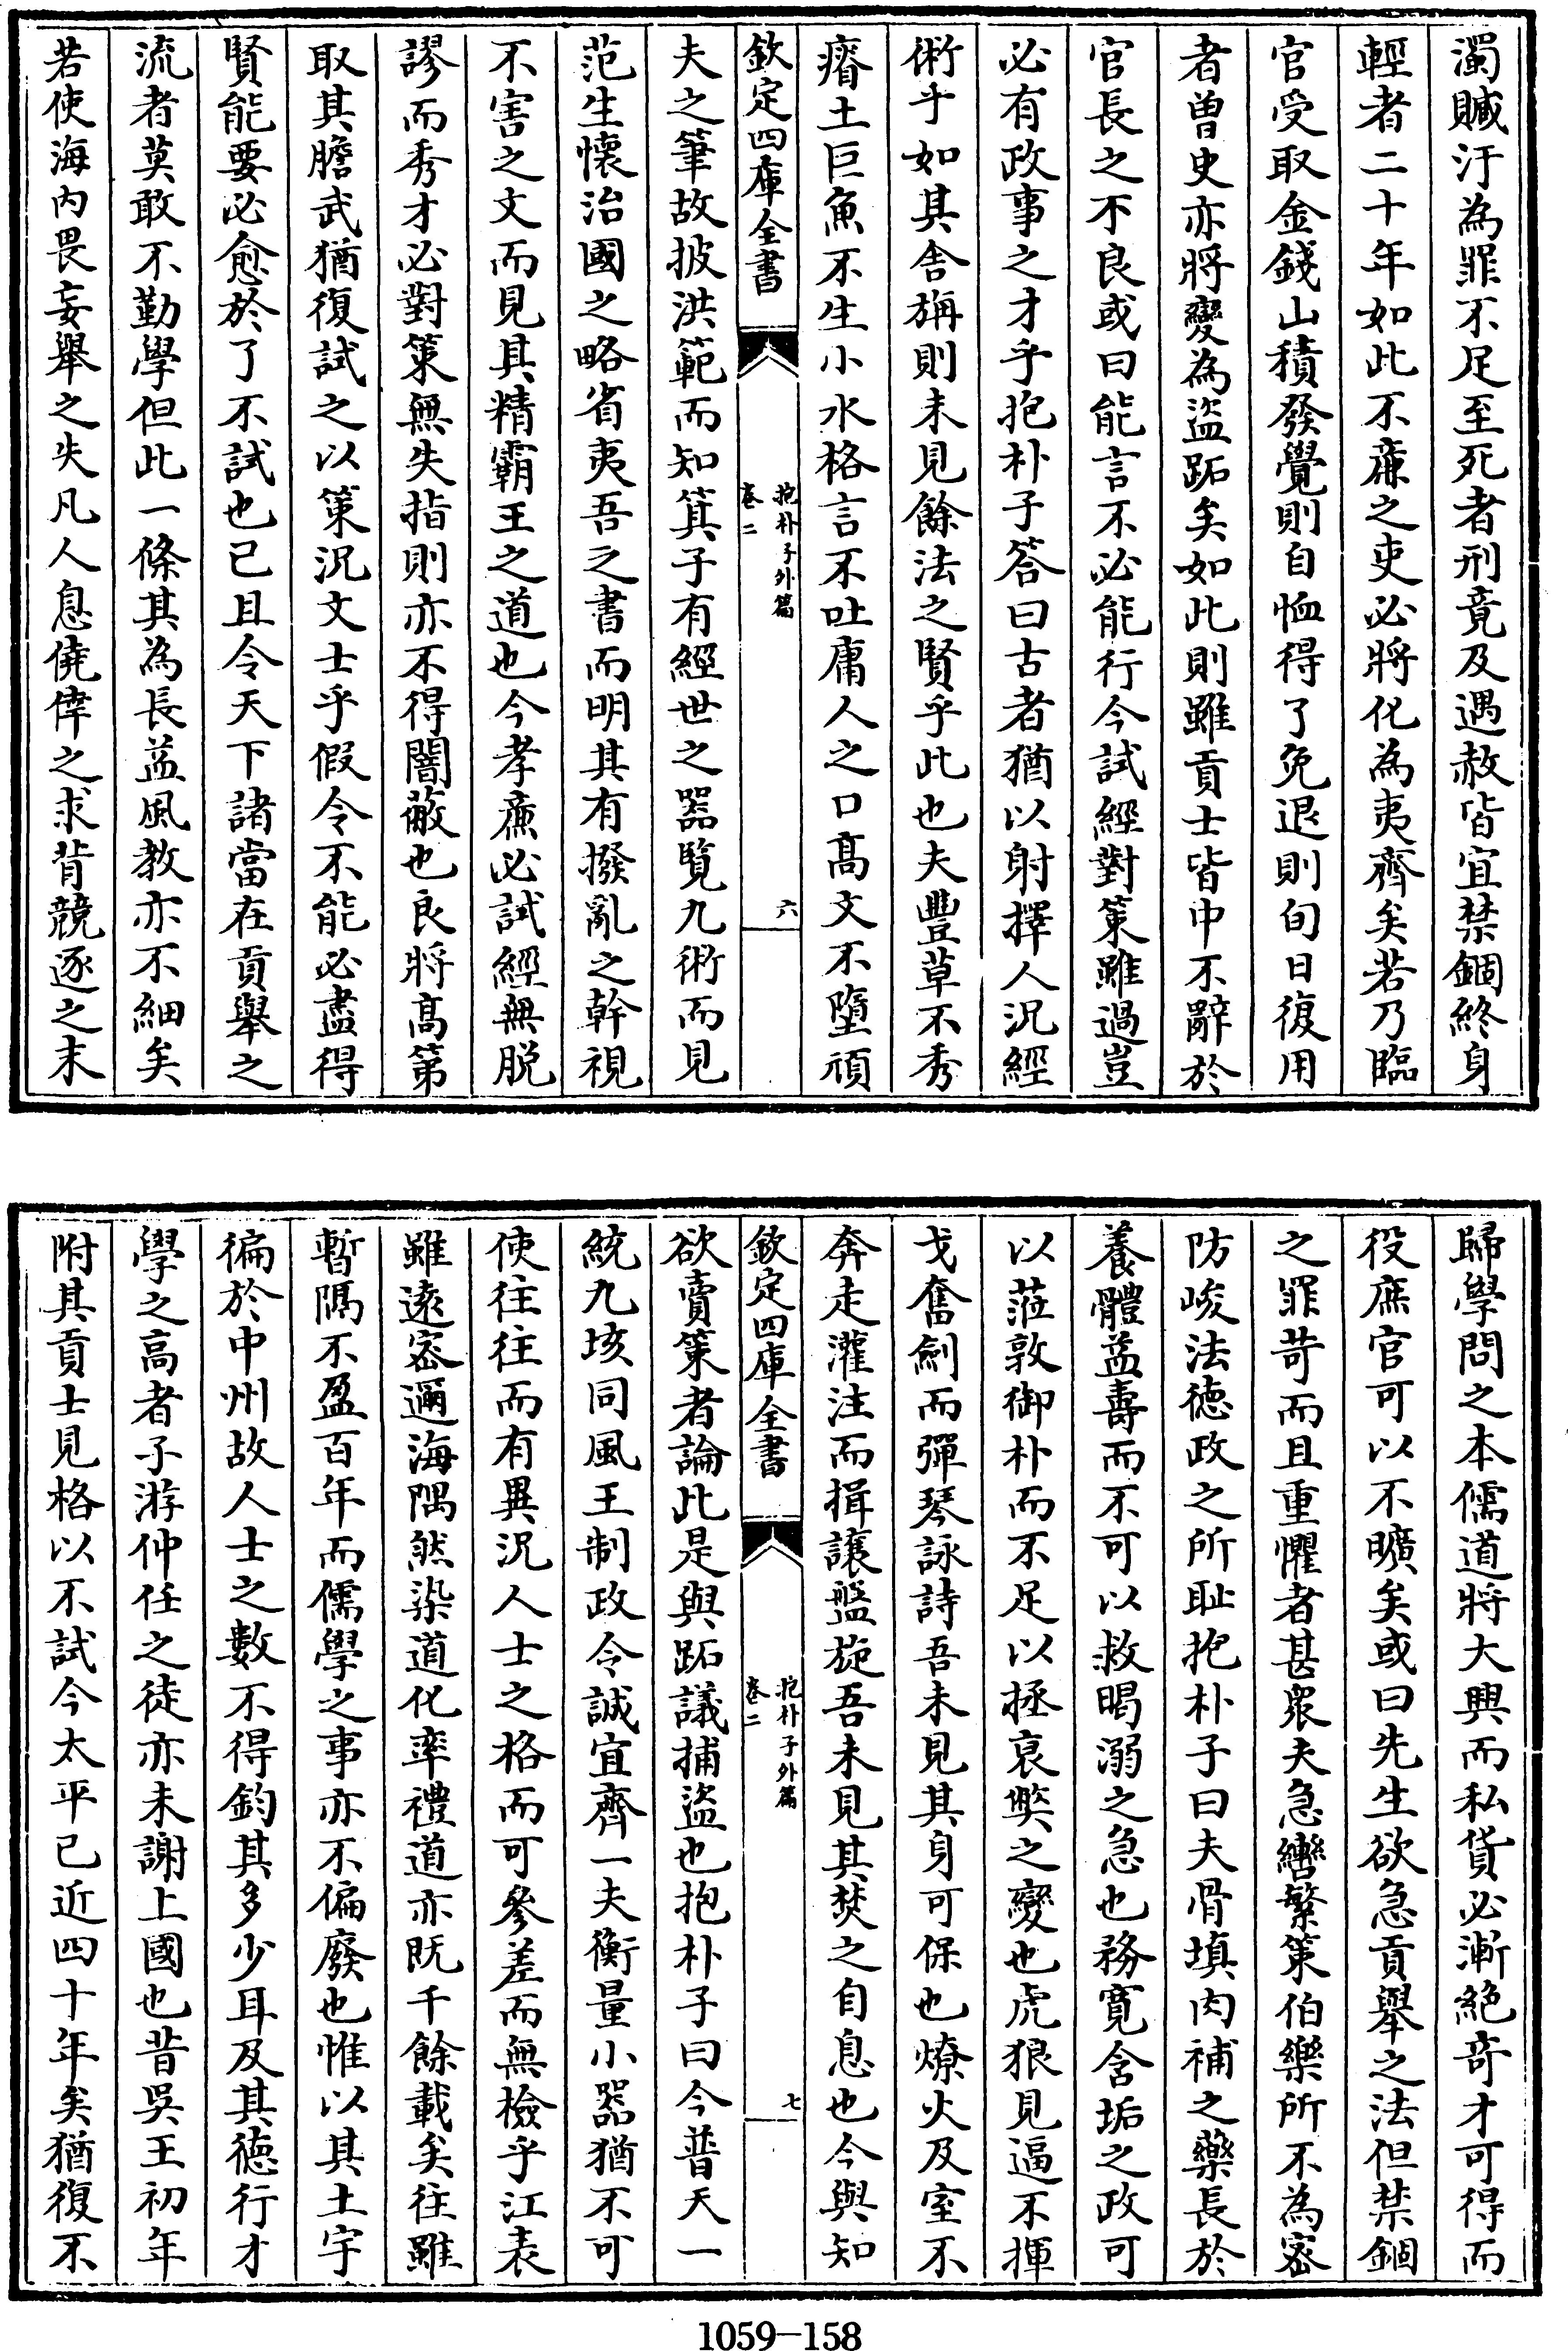 濁贓汙為罪不足至死者刑竟及遇赦皆宜禁錮終身
輕者二十年如此不廉之吏必將化為夷齊矣若乃臨
官受取金錢山積發覺則自恤得了免退則旬日復用
者曽史亦將變為盜跖矣如此則雖貢士皆中不辭於
官長之不良或曰能言不必能行今試經對策雖過豈
必有政事之才乎抱朴子答曰古者猶以射擇人況經
術乎如其舍旃則未見餘法之賢乎此也夫豐草不秀
瘠土巨魚不生小水格言不吐庸人之口髙文不墮頑
欽定四庫全書
抱朴子外篇
卷二
六
夫之筆故披洪範而知箕子有經世之器覽九術而見
范生懷治國之略省夷吾之書而明其有撥亂之幹視
不害之文而見其精霸王之道也今孝廉必試經無脱
謬而秀才必對策無失指則亦不得闇蔽也良將髙第
取其膽武猶復試之以策況文士乎假令不能必盡得
賢能要必愈於了不試也已且令天下諸當在貢舉之
流者莫敢不勤學但此一條其為長益風教亦不細矣
若使海内畏妄舉之失凡人息僥倖之求背競逐之末
歸學問之本儒道將大興而私貨必漸絶奇才可得而
役庶官可以不曠矣或曰先生欲急貢舉之法但禁錮
之罪苛而且重懼者甚衆夫急轡繁策伯樂所不為密
防峻法德政之所耻抱朴子曰夫骨填肉補之藥長於
養體益壽而不可以救暍溺之急也務寛含垢之政可
以蒞敦御朴而不足以拯衰弊之變也虎狼見逼不揮
戈奮劍而彈琴詠詩吾未見其身可保也燎火及室不
奔走灌注而揖讓盤旋吾未見其焚之自息也今與知
欽定四庫全書
抱朴子外篇
卷二
七
欲賣策者論此是與跖議捕盜也抱朴子曰今普天一
統九垓同風王制政令誠宜齊一夫衡量小器猶不可
使往往而有異況人士之格而可參差而無檢乎江表
雖遠密邇海隅然染道化率禮道亦既千餘載矣往雖
暫隔不盈百年而儒學之事亦不偏廢也惟以其土宇
徧於中州故人士之數不得鈞其多少耳及其德行才
學之高者子游仲任之徒亦未謝上國也昔吳王初年
附其貢士見格以不試今太平已近四十年矣猶復不
1059-158